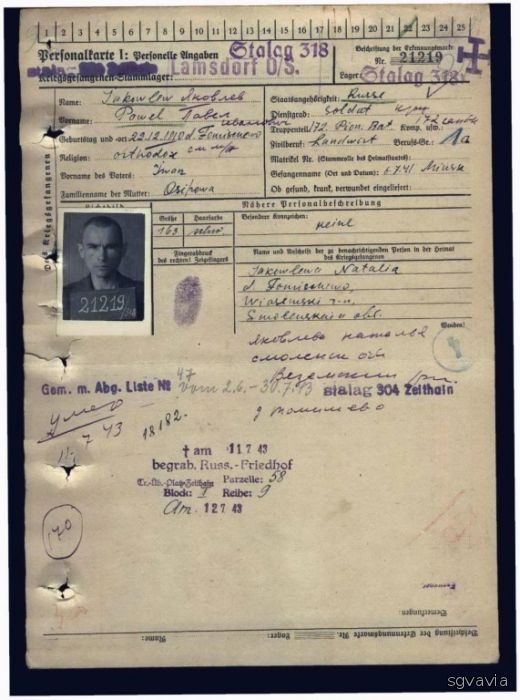 1 2 3 4 5 6 7 8 9 10 11 12 13 14 15 16 17 18 19 20 21 22 23 24 25
Personalkarte I: Personelle Angaben
Stalag 318
Beschriftung der Erkennungsmarke
Nr. 21219
Kriegsgefangenen-Stammlager:
Lamsdorf O/S.
Lager: Stalag 318
Des Kriegsgefangenen
Name: Jakowlew Яковлев
Vorname: Pawel Павел Иванович
Geburtstag und -ort 22.12.1910 d.
Religion: orthodox
Vorname des Vaters: Iwan
Familienname der Mutter: Osipowa
Staatsangehörigkeit: Russe
Dienstgrad: Soldat
Truppenteil: 172. Pion. Bat. Komp. usw.
Zivilberuf: Landwirt Berufs-Gr.:
Matrikel Nr. (Stammrolle des Heimatstaates):
Gefangennahme (Ort und Datum): 6.7.41 Minsk
Ob gesund, krank, verwundet eingeliefert:
Lichtbild
Nähere Personalbeschreibung
Größe
Haarfarbe
Besondere Kennzeichen:
163
schw.
keine
Fingerabdruck
des rechten! Zeigefingers
Name und Anschrift der zu benachrichtigenden Person in der Heimat
des Kriegsgefangenen
21219
Jakowlewa Natalia
Wiasemski
Smolenskaja obl.
Wenden!
Яковлева Наталья
Gem. m. Abg. Liste № 47 vom 2.6. - 30.7.43 Stalag 304 Zeithain
умер
11. 7 43
18182.
† am 11 7 43
begrab. Russ.-Friedhof
Tr.-Üb.-Platz-Zeithain Parzelle: 58
Block: I Reihe: 9
Am. 12 7 43
170
Bemerkungen:
Beschriftung der Erkennungsmarke Nr.
Lager:
Name:
sgvavia